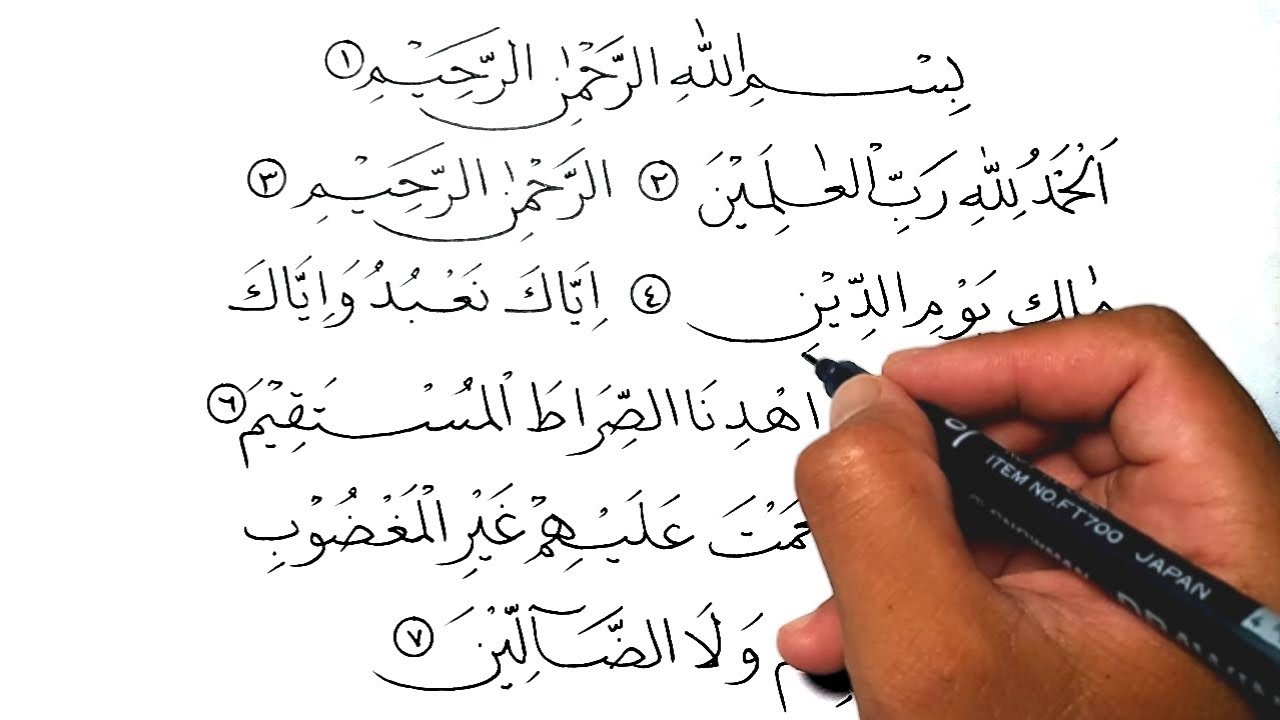 بِسْمِ اللّٰهِ الرَّحْمٰنِ الرَّحِيْمِ ١
اَلْحَمْدُ لِلّٰهِ رَبِّ الْعٰلَمِيْنَ ٢ الرَّحْمٰنِ الرَّحِيْمِ ٣
مٰلِكِ يَوْمِ الدِّيْنِ ٤ اِيَّاكَ نَعْبُدُ وَاِيَّاكَ
اهْدِنَا الصِّرَاطَ الْمُسْتَقِيْمَ ٦
عَلَيْهِمْ غَيْرِ الْمَغْضُوْبِ
وَلَا الضَّآلِّيْنَ ٧
ITEM NO.FT700 JAPAN